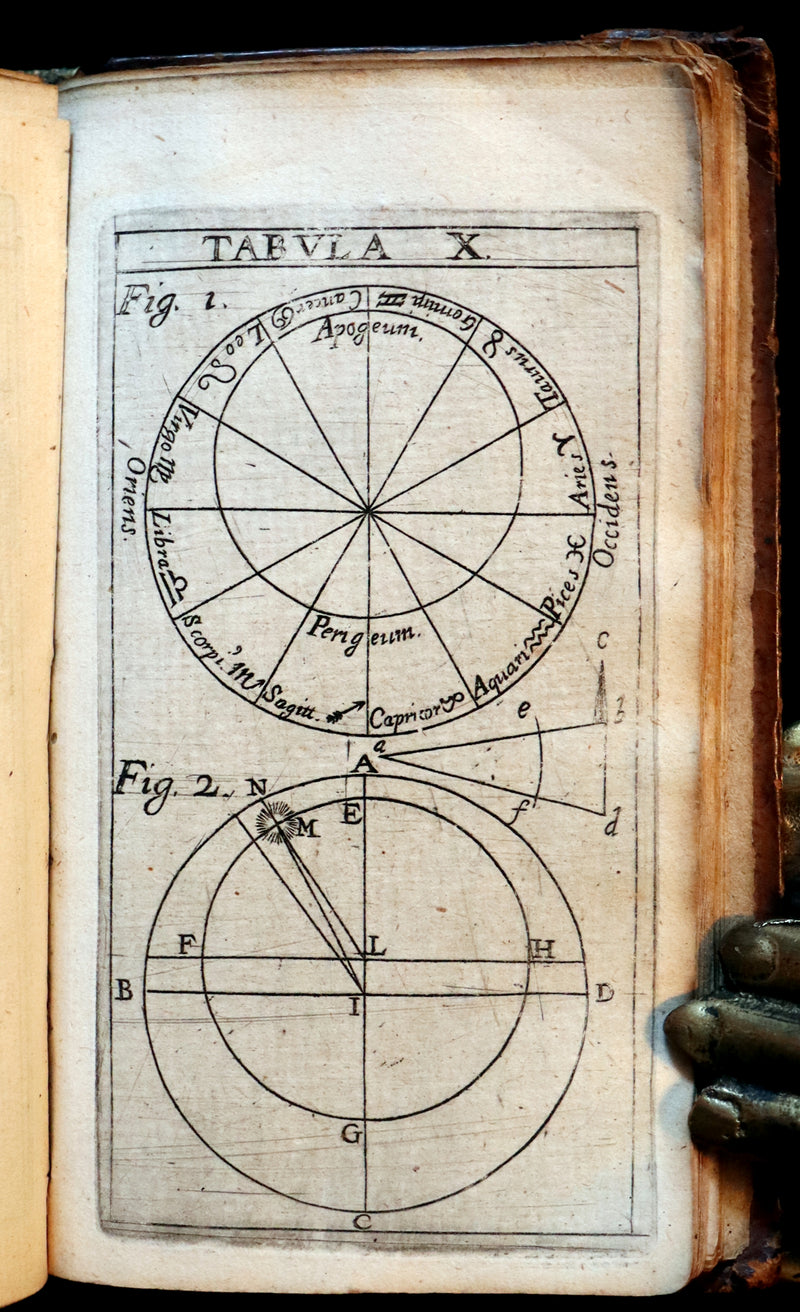 TABVLA X.
Fig. 1.
Cancer ♋
Gemini ♊
Leo ♌
Apogaeum.
Taurus ♉
Virgo ♍
Aries ♈
Oriens.
Occidens.
Libra ♎
Pices ♓
Scorpi. ♏
Perigeum.
Aquari ♒
Sagitt. ♐
Capricor ♑
c
e
b
a
A
Fig. 2.
N
E
M
f
d
F
L
H
B
I
D
G
C